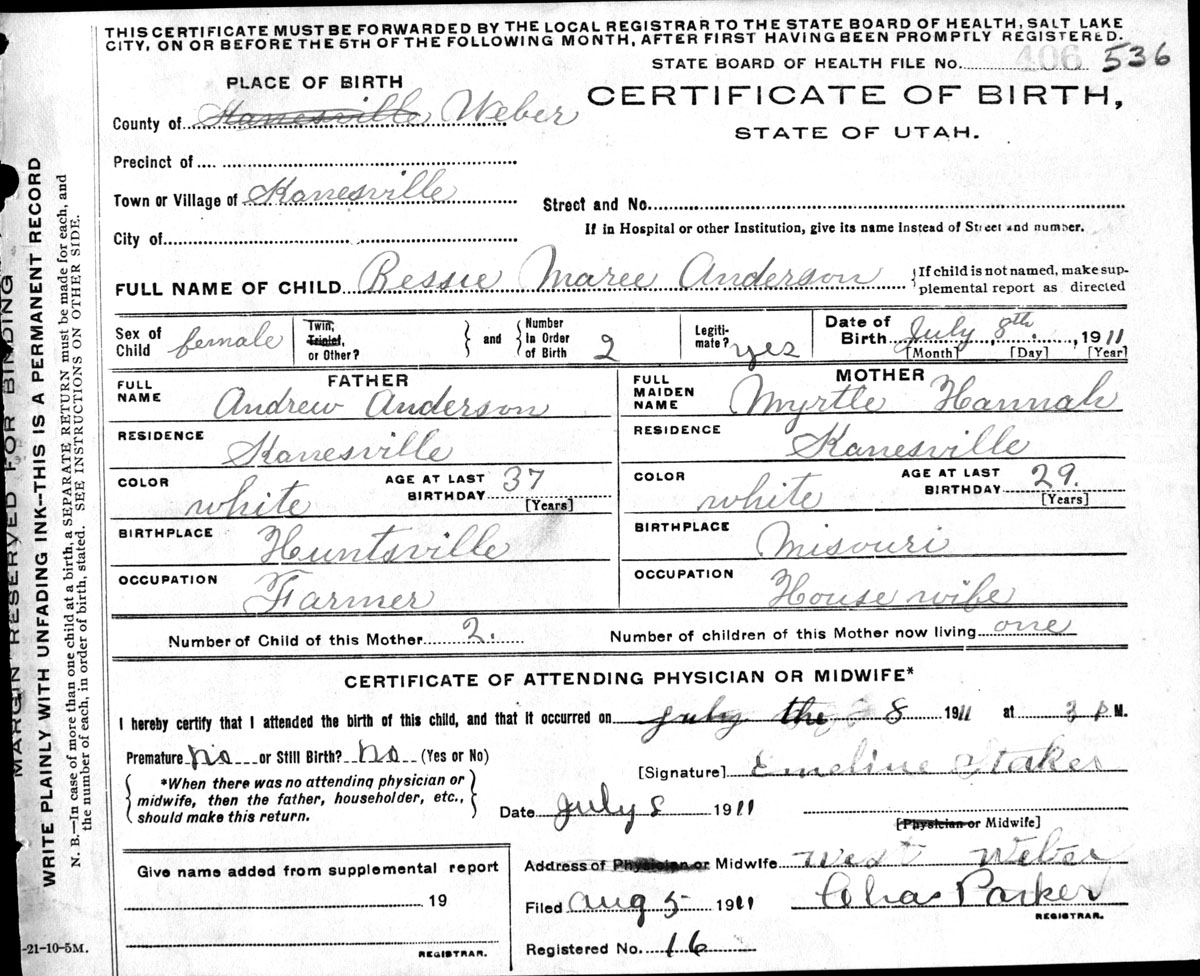 THIS CERTIFICATE MUST BE FORWARDED BY THE LOCAL REGISTRAR TO THE STATE BOARD OF HEALTH, SALT LAKE
CITY, ON OR BEFORE THE 5TH OF THE FOLLOWING MONTH, AFTER FIRST HAVING BEEN PROMPTLY REGISTERED.
STATE BOARD OF HEALTH FILE No. 406 536
PLACE OF BIRTH
CERTIFICATE OF BIRTH,
STATE OF UTAH.
County of Kanesville Weber
Precinct of
Town or Village of Kanesville
Street and No.
City of
If in Hospital or other Institution, give its name instead of Street and number.
FULL NAME OF CHILD Bessie Maree Anderson
If child is not named, make sup-
plemental report as directed
Sex of Child female
Twin, Triplet, or Other?
and
Number in Order of Birth 2
Legiti-mate? yes
Date of Birth July 8th, 1911
[Month] [Day] [Year]
FATHER
FULL NAME Andrew Anderson
RESIDENCE Kanesville
COLOR white AGE AT LAST BIRTHDAY 37 [Years]
BIRTHPLACE Huntsville
OCCUPATION Farmer
MOTHER
FULL MAIDEN NAME Myrtle Hannah
RESIDENCE Kanesville
COLOR white AGE AT LAST BIRTHDAY 29. [Years]
BIRTHPLACE Misouri
OCCUPATION House wife
Number of Child of this Mother 2. Number of children of this Mother now living one
CERTIFICATE OF ATTENDING PHYSICIAN OR MIDWIFE*
I hereby certify that I attended the birth of this child, and that it occurred on july the 8 1911 at 3 P M.
Premature? No or Still Birth? No (Yes or No)
*When there was no attending physician or
midwife, then the father, householder, etc.,
should make this return.
[Signature] Emeline Staker
Date July 8 1911
[Physician or Midwife]
Address of Physician or Midwife West Weber
Filed Aug 5 1911 Chas Parker
REGISTRAR.
Registered No. 16
Give name added from supplemental report
19
REGISTRAR.
-21-10-5M.
MARGIN RESERVED FOR BINDING
WRITE PLAINLY WITH UNFADING INK--THIS IS A PERMANENT RECORD
N. B.—In case of more than one child at a birth, a SEPARATE RETURN must be made for each, and
the number of each, in order of birth, stated. SEE INSTRUCTIONS ON OTHER SIDE.